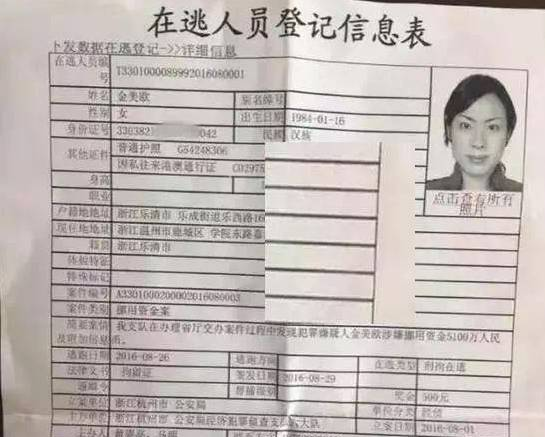 在逃人员登记信息表
卜发数据在逃登记->>详细信息
在逃人员编号 T3301000089992016080001
姓名 金美欧 别名绰号
性别 女 出生日期 1984-01-16
身份证号 330382 042 民族 汉族
其他证件 普通护照 G54248306
因私往来港澳通行证 C02975
身高
职业
户籍地地址 浙江乐清市 乐成街道乐西路16
现住地地址 浙江温州市鹿城区 学院东路嘉
籍贯 浙江乐清市
体貌特征
特殊标记
点击查看所有照片
案件编号 A3301000200002016080003
案件类别 挪用资金案
简要案情及附加信息 我支队在办理省厅交办案件过程中发现犯罪嫌疑人金美欧涉嫌挪用资金5100万人民币。
逃跑日期 2016-08-26 逃跑方向 在逃类型 刑拘在逃
法律文书 拘留证 签发日期 2016-08-29
通缉令 督捕级别 奖金 500元
立案单位 浙江杭州市 公安局 单位分类 经侦
主办单位 浙江杭州市 公安局经济犯罪侦查支队 大队 立案日期 2016-08-01
主办人